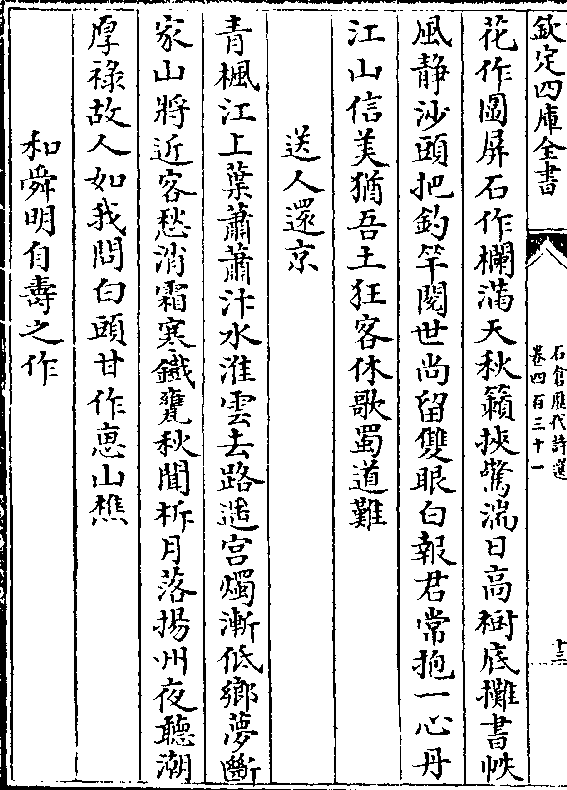 欽定四庫全書
石倉歷代詩選
卷四百三十一
十三
花作圖屏石作欄滿天秋籟挾驚湍日高樹底攤書帙
風静沙頭把釣竿閱世尚留雙眼白報君常抱一心丹
江山信美猶吾土狂客休歌蜀道難
送人還京
青楓江上葉蕭蕭汴水淮雲去路遥宫燭漸低鄉夢斷
家山將近客愁消霜寒鐵甕秋聞柝月落揚州夜聽潮
厚禄故人如我問白頭甘作惠山樵
和舜明自壽之作